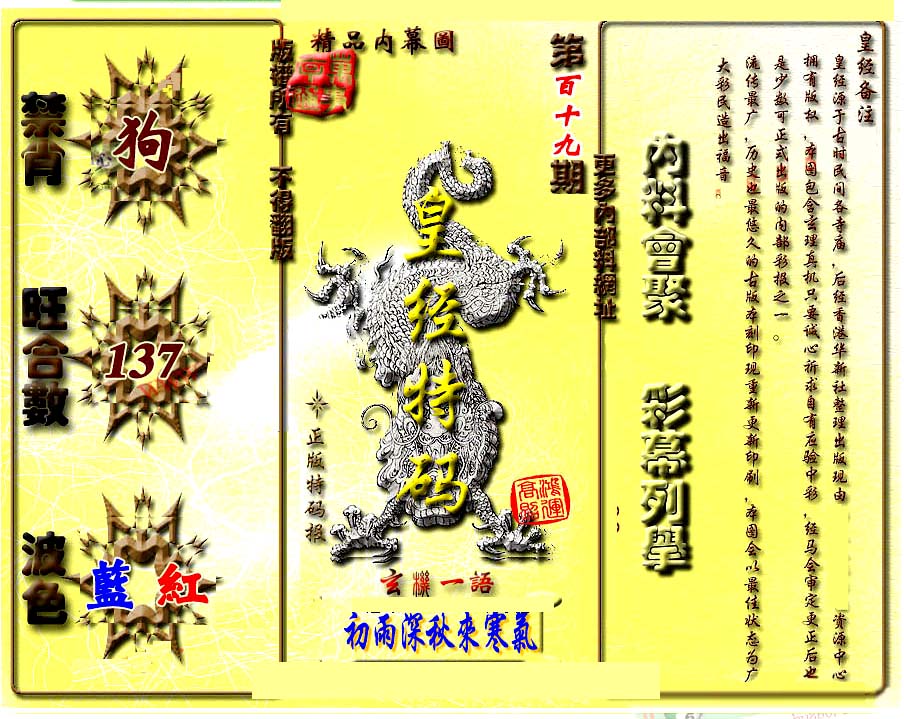 精品内幕圖
版權所有 不得翻版
第百十九期
更多內部料網址
禁肖
狗
旺合數
137
波色
藍 紅
皇经特码
正版特码报
鴻運高照
玄機一語
初雨深秋來寒氣
內料會聚
彩幕列舉
皇经备注
皇经源于古时民间各寺庙,后经香港华新社整理出版现由 资源中心
拥有版权,本图包含玄理真机只要诚心祈求自有应验中彩,经马会审定更正后也
是少数可正式出版的内部彩报之一。
流传最广,历史也最悠久的古版本刻印现重新更新印刷,本图会以最佳状态为广
大彩民造出福音